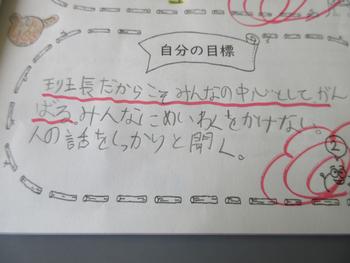 自分の目標
班長だからこそみんなの中心としてがん
ばる。みんなにめいわくをかけない。
人の話をしっかりと聞く。
2